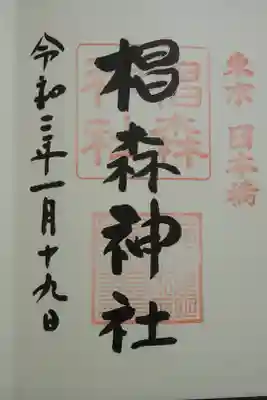 東京 日本橋
椙森神社
椙森
神社
令和三年一月十九日